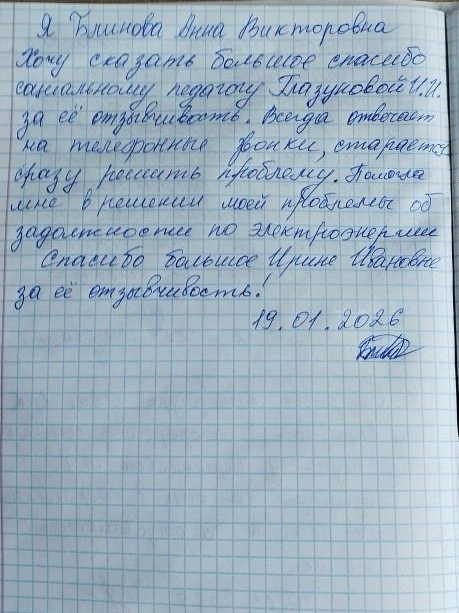 Я Блинова Анна Викторовна
Хочу сказать большое спасибо
социальному педагогу Глазуновой И.И.
за её отзывчивость. Всегда отвечает
на телефонные звонки, старается
сразу решить проблему. Помогла
мне в решении моей проблемы об
задолжности по электроэнергии
Спасибо большое Ирине Ивановне
за её отзывчивость!
19.01.2026